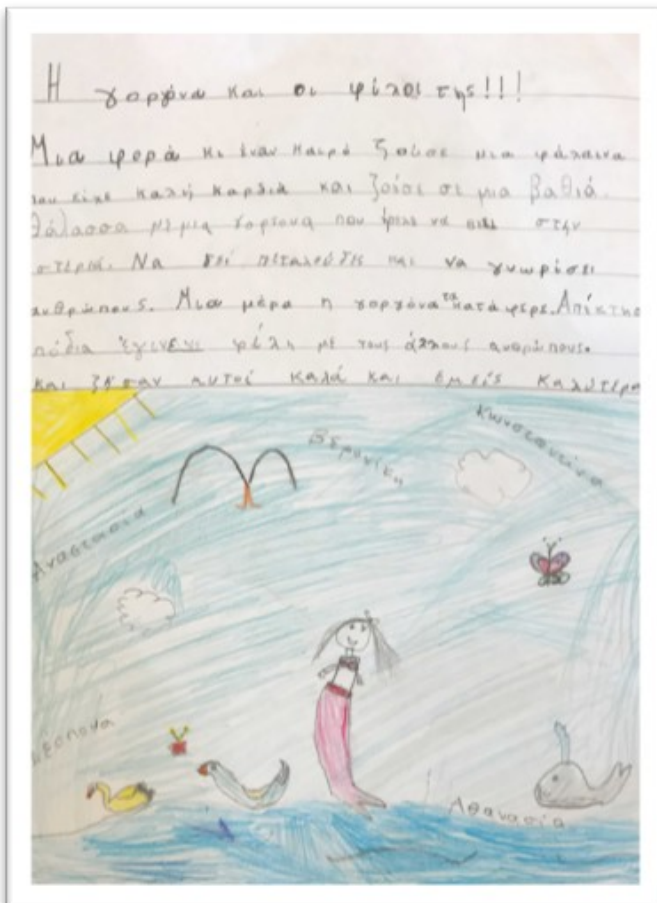 Η γοργόνα και οι φίλοι της!!!
Μια φορά κι έναν καιρό ζούσε μια φάλαινα
που είχε καλή καρδιά και ζούσε σε μια βαθιά
θάλασσα με μια γοργονα που ήθελε να πάει στην
στεριά. Να δεί πεταλούδες και να γνωρίσει
ανθρώπους. Μια μέρα η γοργόνα τα κατάφερε. Απέκτησε
πόδια έγινε φίλη με τους άλλους ανθρώπους.
και ζήσαν αυτοί καλά και εμείς καλύτερα
Βερονίκη
Κωνσταντίνα
Αναστασία
Δέσποινα
Αθανασία